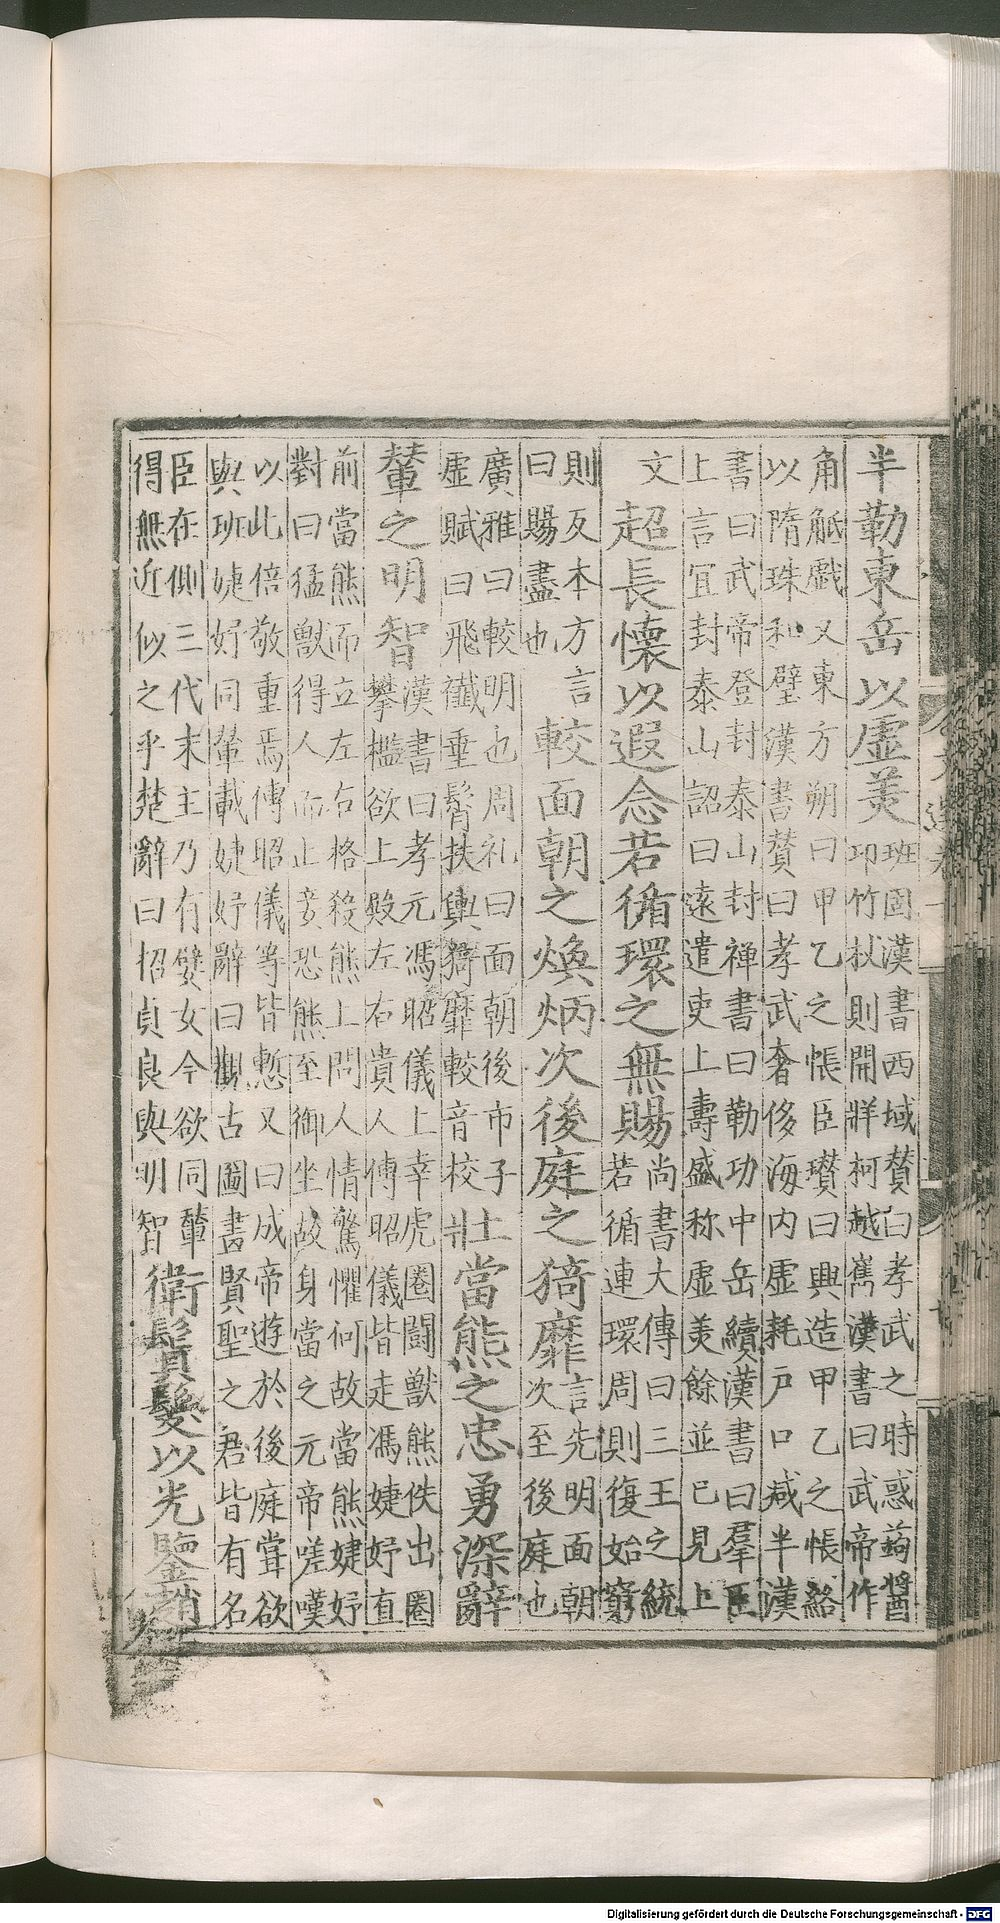 半勒東岳以虛美
班固漢書西域贊曰孝武之時惑蒟醬
卭竹杖則開牂柯越嶲漢書曰武帝作
角觝戲又東方朔曰甲乙之帳臣瓉曰興造甲乙之帳絡
以隋珠和璧漢書贊曰孝武奢侈海内虛耗戸口减半漢
書曰武帝登封泰山封禅書曰勒功中岳續漢書曰羣臣
上言冝封泰山詔曰遠遣吏上壽盛称虛美餘並已見上
文
超長懷以遐念若循環之無賜
尚書大傳曰三王之統
若循連環周則復始窮
則反本方言
曰賜盡也
較面朝之煥炳次後庭之猗靡
言先明面朝
次至後庭也
廣雅曰較明也周礼曰面朝後市子
虛賦曰飛襳垂髾扶輿猗靡較音校
壯當熊之忠勇深辭
輦之明智
漢書曰孝元馮昭儀上幸虎圈闘獸熊佚出圈
攀檻欲上殿左右貴人傅昭儀皆走馮婕妤直
前當熊而立左右格殺熊上問人情驚懼何故當熊婕妤
對曰猛獸得人而止妾恐熊至御坐故身當之元帝嗟嘆
以此倍敬重焉傅昭儀等皆慙又曰成帝遊於後庭甞欲
與班婕妤同輦載婕妤辭曰觀古圖畫賢聖之君皆有名
臣在側三代末主乃有嬖女今欲同輦
得無近似之乎楚辭曰招貞良與明智
衛鬒髮以光鑒趙
Digitalisierung gefördert durch die Deutsche Forschungsgemeinschaft - DFG